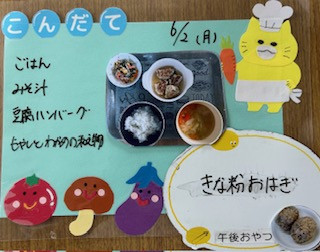 こんだて
6/2(月)
ごはん
みそ汁
豆腐ハンバーグ
もやしとわかめの和え物
きな粉おはぎ
午後おやつ